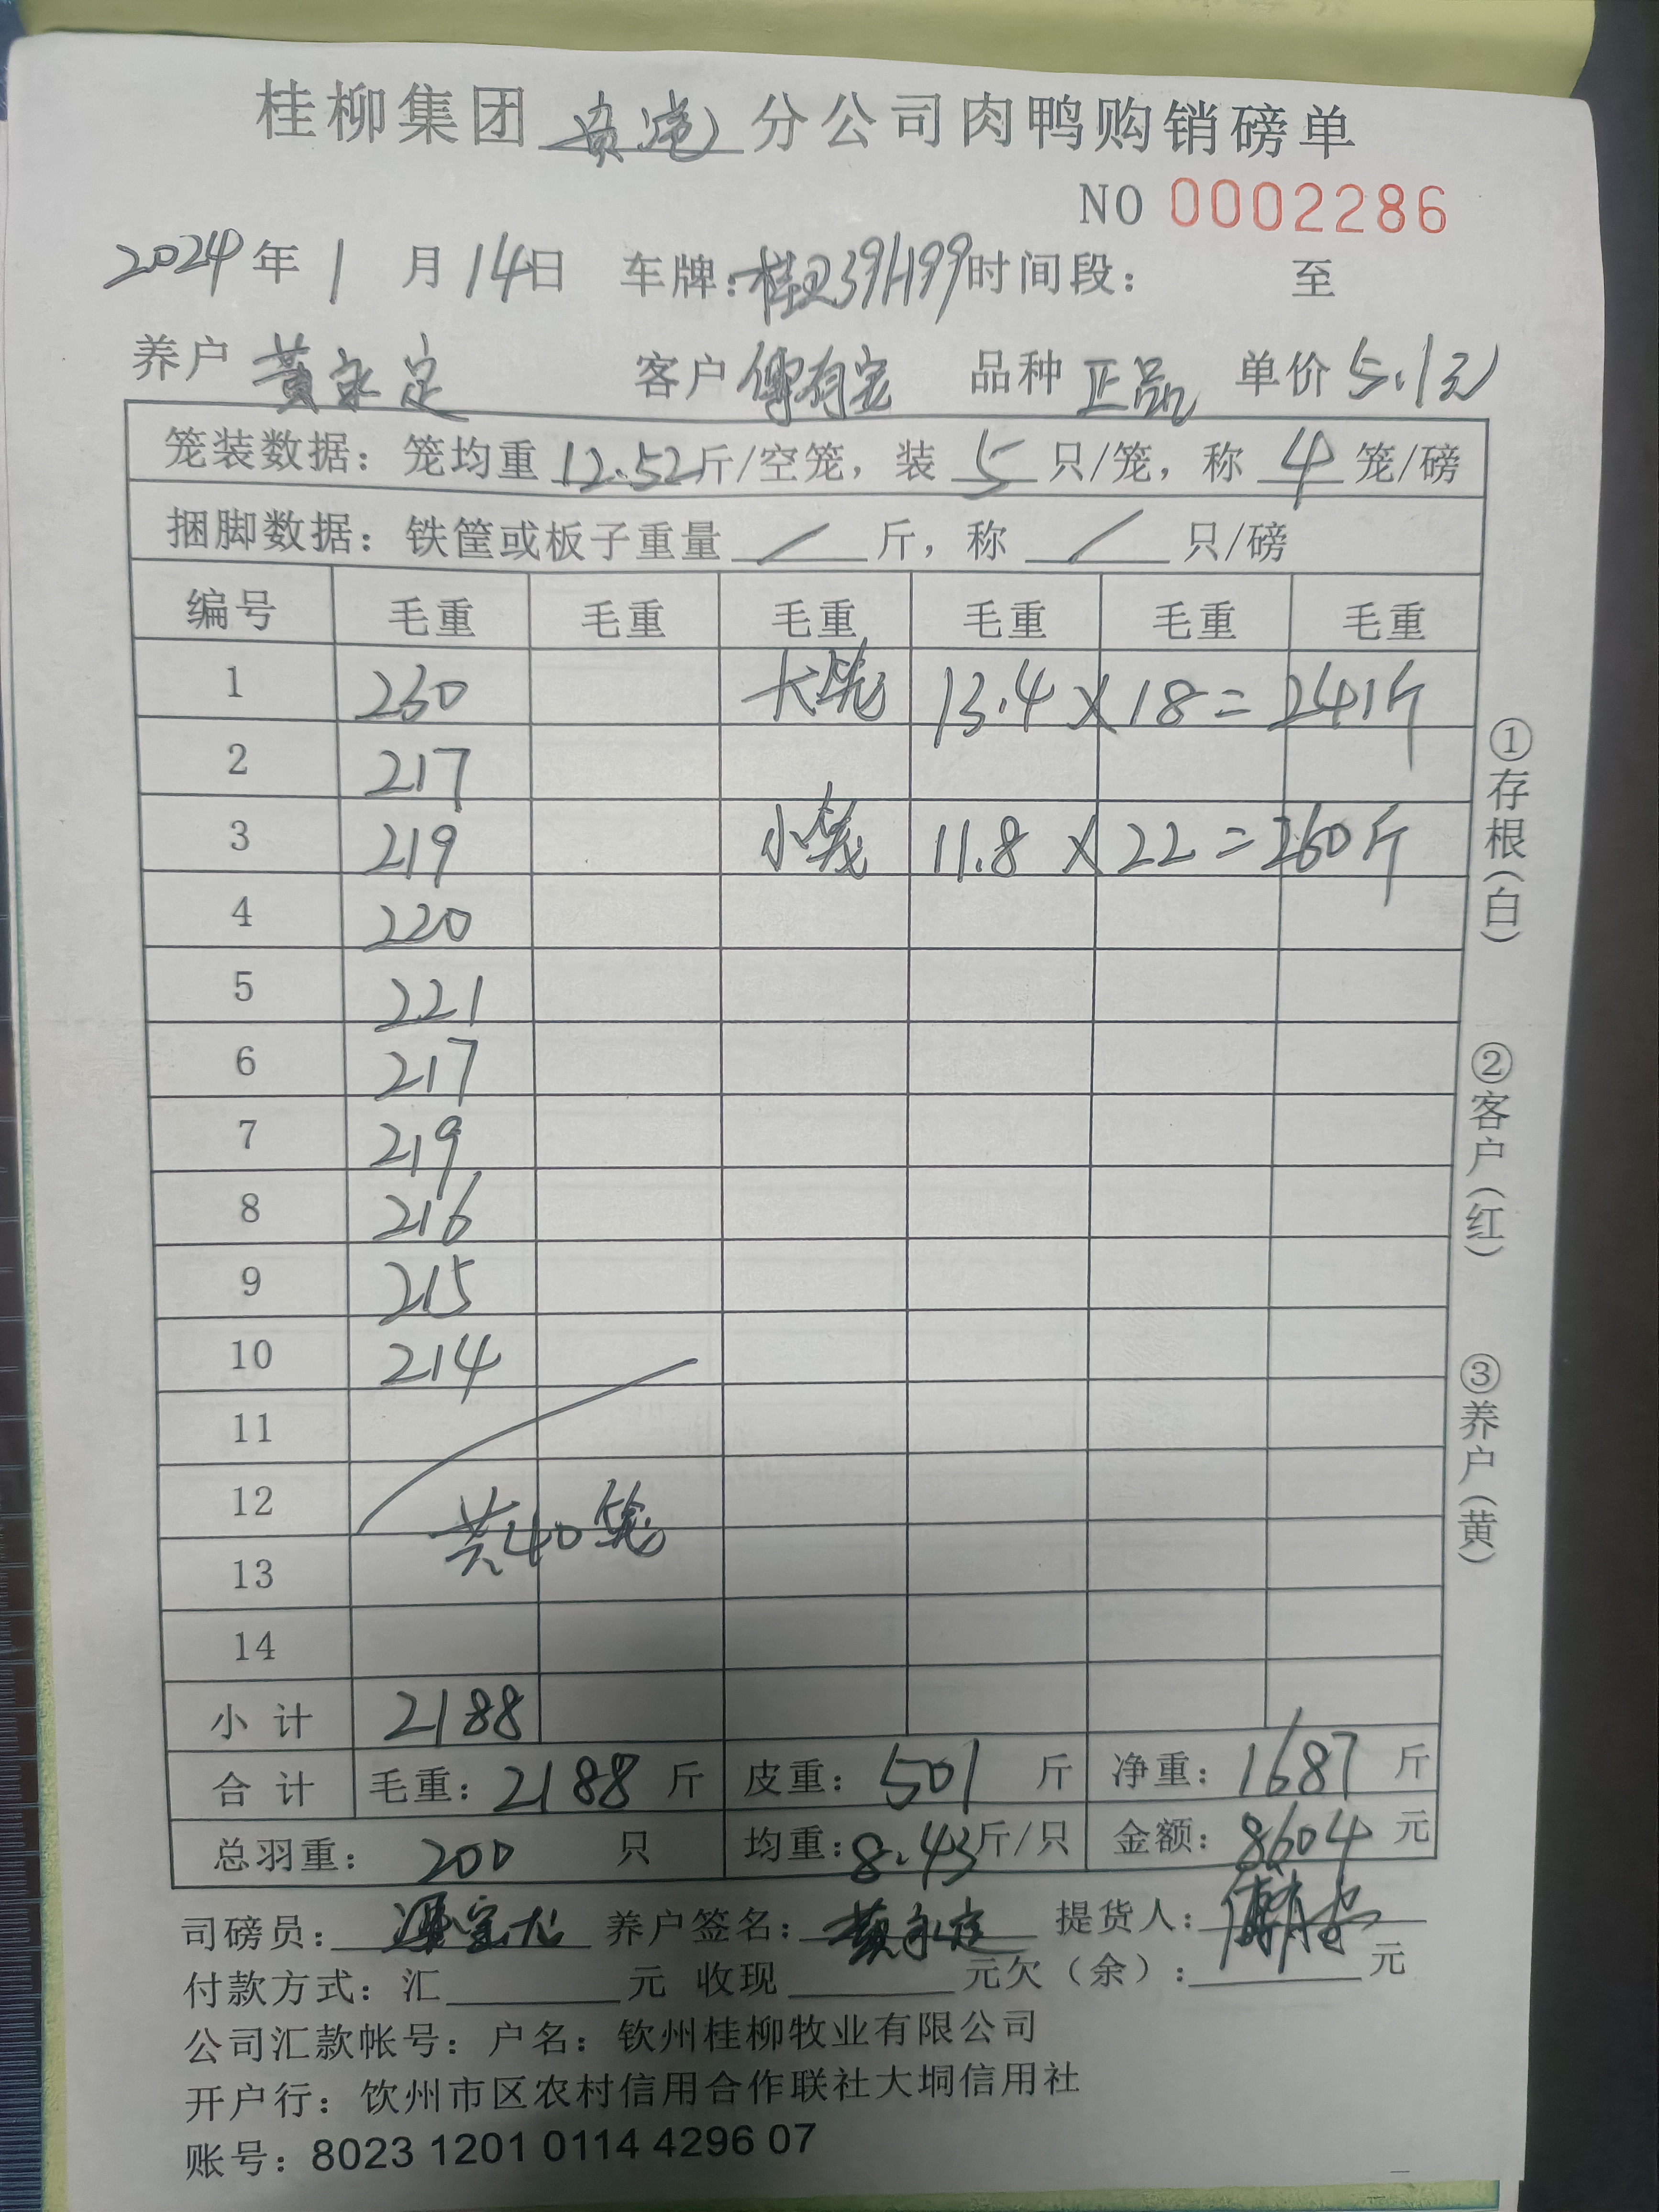 桂柳集团贵港分公司肉鸭购销磅单
NO 0002286
2024年1月14日 车牌: 时间段: 至
养户 黄永定 客户 品种 正品 单价 5.1元
笼装数据：笼均重12.52斤/空笼，装5只/笼，称4笼/磅
捆脚数据：铁筐或板子重量/斤，称/只/磅
编号 毛重 毛重 毛重 毛重 毛重 毛重
1 230 大笼 13.4×18=241斤
2 217
3 219 小笼 11.8×22=260斤
4 220
5 221
6 217
7 219
8 216
9 215
10 214
11
12
共40笼
13
14
小计 2188
合计 毛重：2188斤 皮重：501斤 净重：1687斤
总羽重：200只 均重：8.43斤/只 金额：8604元
司磅员: 养户签名：黄永定 提货人：
付款方式：汇 元 收现 元欠（余）： 元
公司汇款帐号：户名：钦州桂柳牧业有限公司
开户行：钦州市区农村信用合作联社大垌信用社
账号：8023 1201 0114 4296 07
①存根（白）
②客户（红）
③养户（黄）